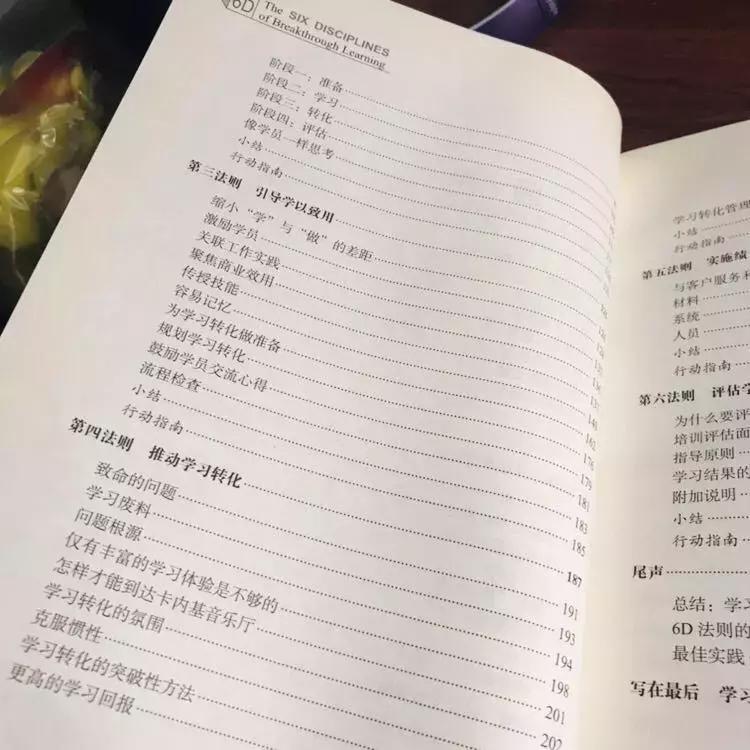 6D The SIX DISCIPLINES
of Breakthrough Learning
阶段一:准备
阶段二:学习
阶段三:转化
阶段四:评估
像学员一样思考
小结
行动指南
第三法则 引导学以致用
缩小“学”与“做”的差距
激励学员
关联工作实践
聚焦商业效用
传授技能 137
容易记忆 140
为学习转化做准备 162
规划学习转化 176
鼓励学员交流心得 179
流程检查 181
小结 183
行动指南 185
第四法则 推动学习转化 187
致命的问题 191
学习废料 193
问题根源 194
仅有丰富的学习体验是不够的 198
怎样才能到达卡内基音乐厅 201
学习转化的氛围 202
克服惯性
学习转化的突破性方法
更高的学习回报
学习转化管理
小结
行动指南
第五法则 实施绩
与客户服务
材料
系统
人员
小结
行动指南
第六法则 评估学
为什么要评
培训评估面
指导原则
学习结果的
附加说明
小结
行动指南
尾声
总结:学习
6D 法则的
最佳实践
写在最后 学习